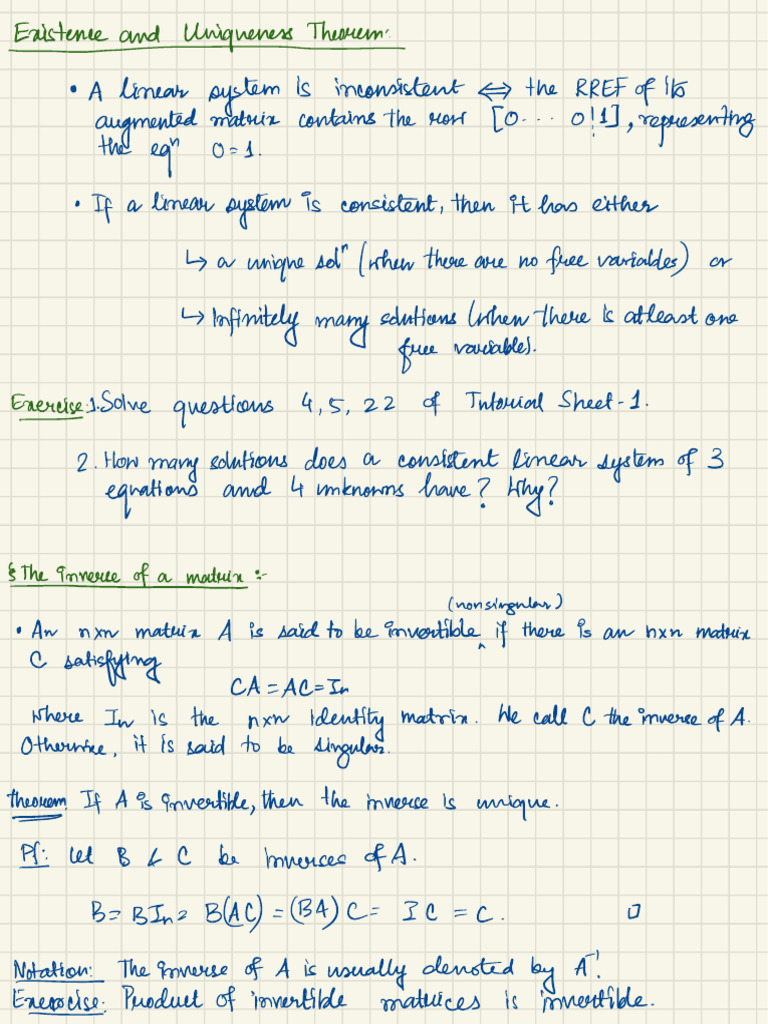 Existence and Uniqueness Theorem:
• A linear system is inconsistent ⟺ the RREF of its
augmented matrix contains the row [0 ... 0 ¦ 1], representing
the eqⁿ 0=1.
• If a linear system is consistent, then it has either
↳ a unique solⁿ (when there are no free variables) or
↳ infinitely many solutions (when there is atleast one
free variable).
Exercise: 1. Solve questions 4, 5, 22 of Tutorial Sheet-1.
2. How many solutions does a consistent linear system of 3
equations and 4 unknowns have? Why?
§ The inverse of a matrix :-
(nonsingular)
• An n×n matrix A is said to be invertible ‸ if there is an n×n matrix
C satisfying
CA = AC = In
where In is the n×n identity matrix. We call C the inverse of A.
Otherwise, it is said to be singular.
Theorem: If A is invertible, then the inverse is unique.
Pf: Let B & C be inverses of A.
B = BIn = B(AC) = (BA) C = I C = C. □
Notation: The inverse of A is usually denoted by A⁻¹.
Exercise: Product of invertible matrices is invertible.